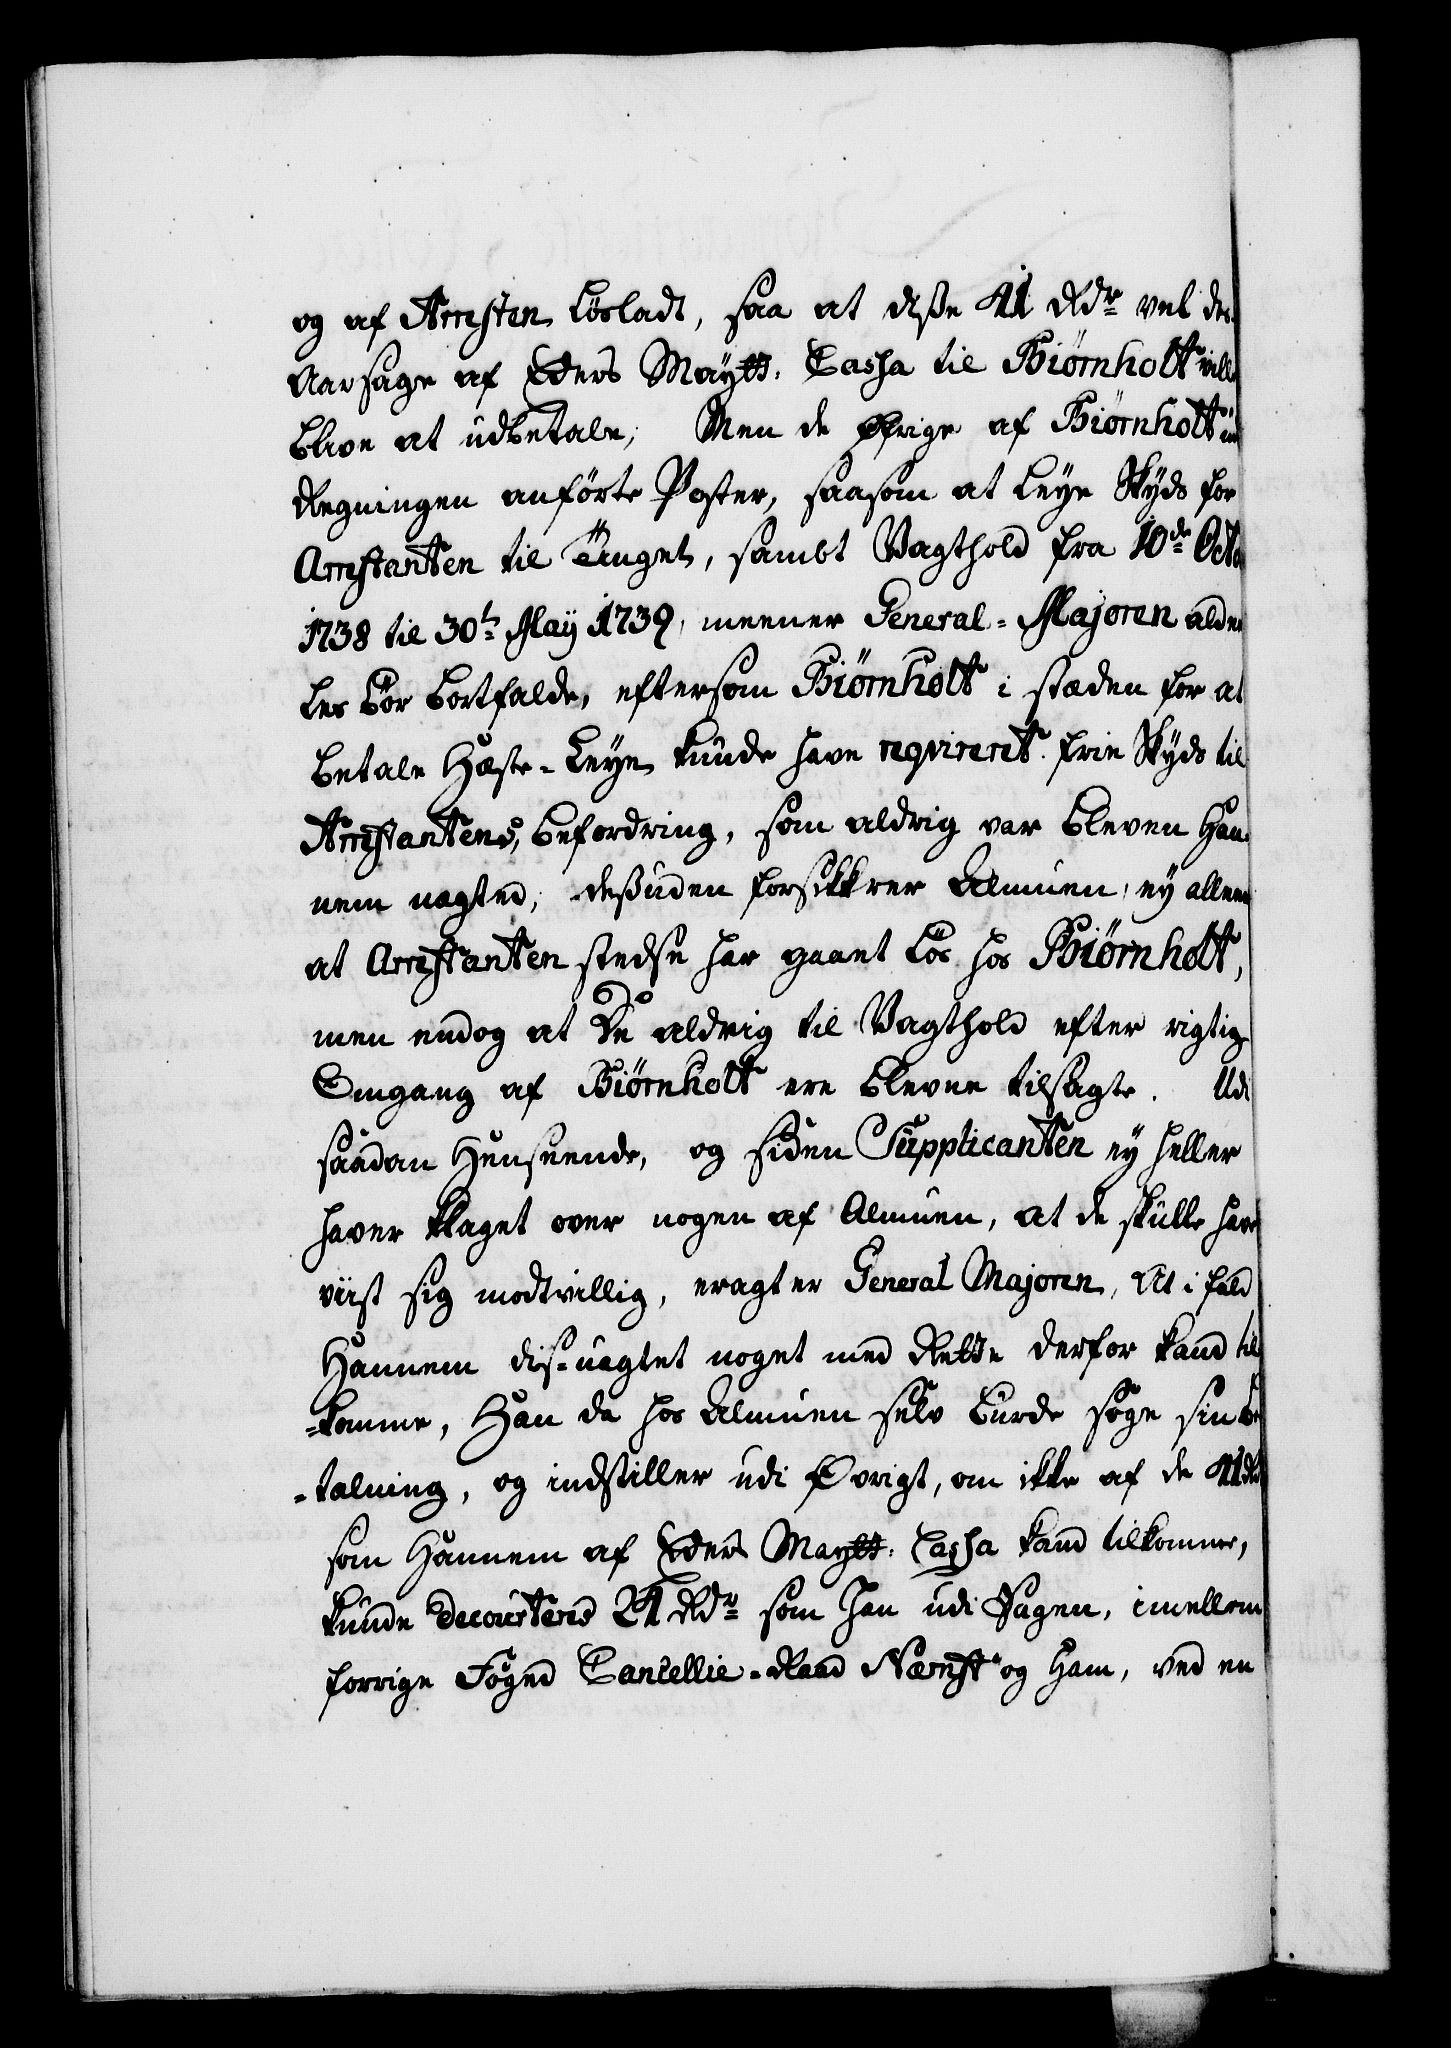 og af Arresten Løsladt, saa at disse 41 Rdr vel der
Aarsage af Eders Maytt. Cassa til Biørnholt ville
blive at udbetale, Men de Øfrige af Biørnholt
Regningen anførte Poster, saasom at Leye Skyds for
Arrestanten til Tinget, sambt Vagthold fra 10de Octo
1738 til 30te May 1739, meener General-Majoren alde
les bør bortfalde, eftersom Biørnholt i stæden for at
betale Hæste-Leye kunde have reqvireret frie Skyds til
Arrestantens befordring, som aldrig var bleven Han
nem nægted, desuden forsikkrer Almuen, ey alleene
at Arrestanten stedse har gaaet Løs hos Biørnholt,
men endog at De aldrig til Vagthold efter rigtig
Omgang af Biørnholt ere blevne tilsagte. Udi
saadan Henseende, og siden Supplicanten ey heller
haver klaget over nogen af Almuen, at de skulle have
viist sig modtvillig, eragter General Majoren, At i fald
Hannem dis-uagtet noget med Rette derfor kand til
-komme, Han da hos Almuen selv burde søge sin be
-talning, og indstiller udi Øvrigt, om ikke af de 41 Rdr
som Hannem af Eders Maytt. Cassa kand tilkomme,
kunde decourteris 21 Rdr som han udi Sagen, imellem
forrige Foged Cancellie-Raad Nærst og Ham, ved en